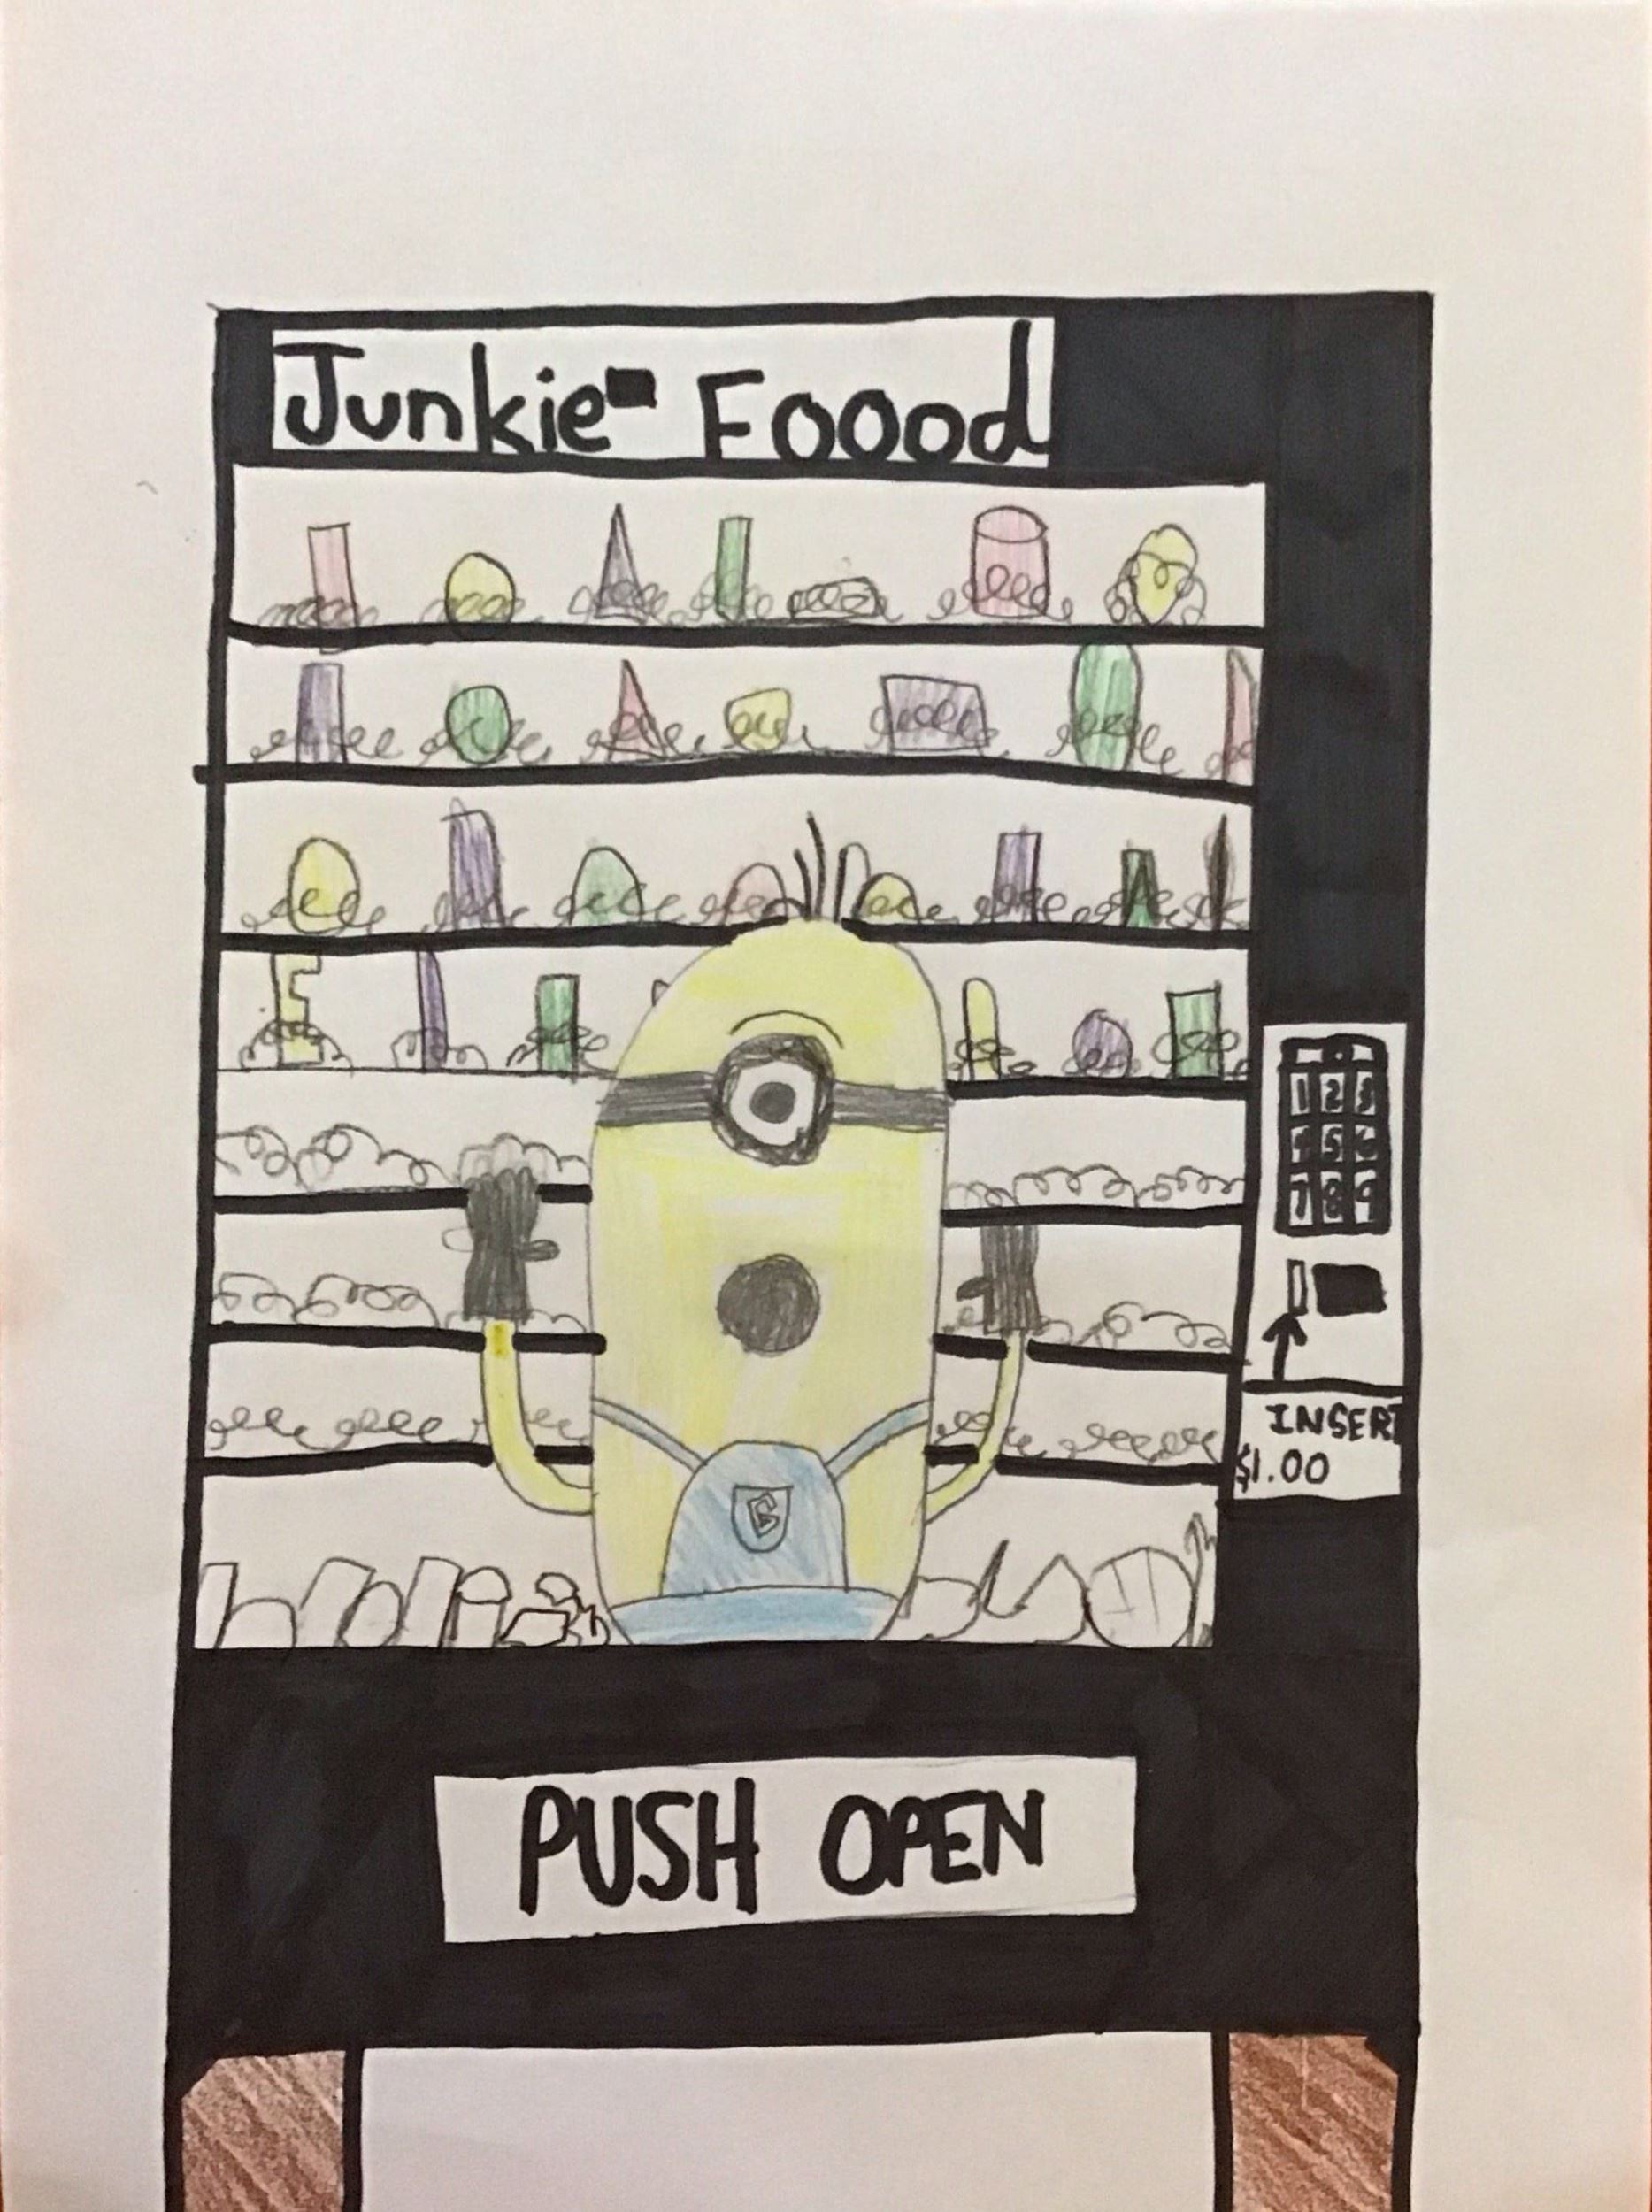 Junkie Foood
1 2 3
4 5 6
7 8 9
INSERT
$1.00
G
PUSH OPEN